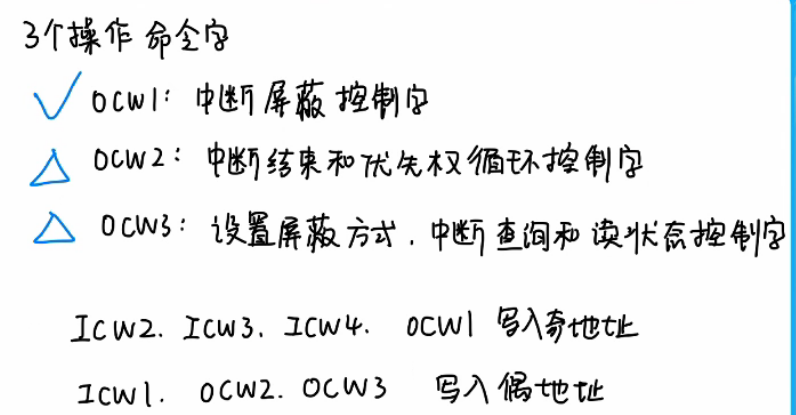 3个操作命令字
OCW1：中断屏蔽控制字
OCW2：中断结束和优先权循环控制字
OCW3：设置屏蔽方式.中断查询和读状态控制字
ICW2. ICW3. ICW4. OCW1 写入奇地址
ICW1. OCW2. OCW3 写入偶地址